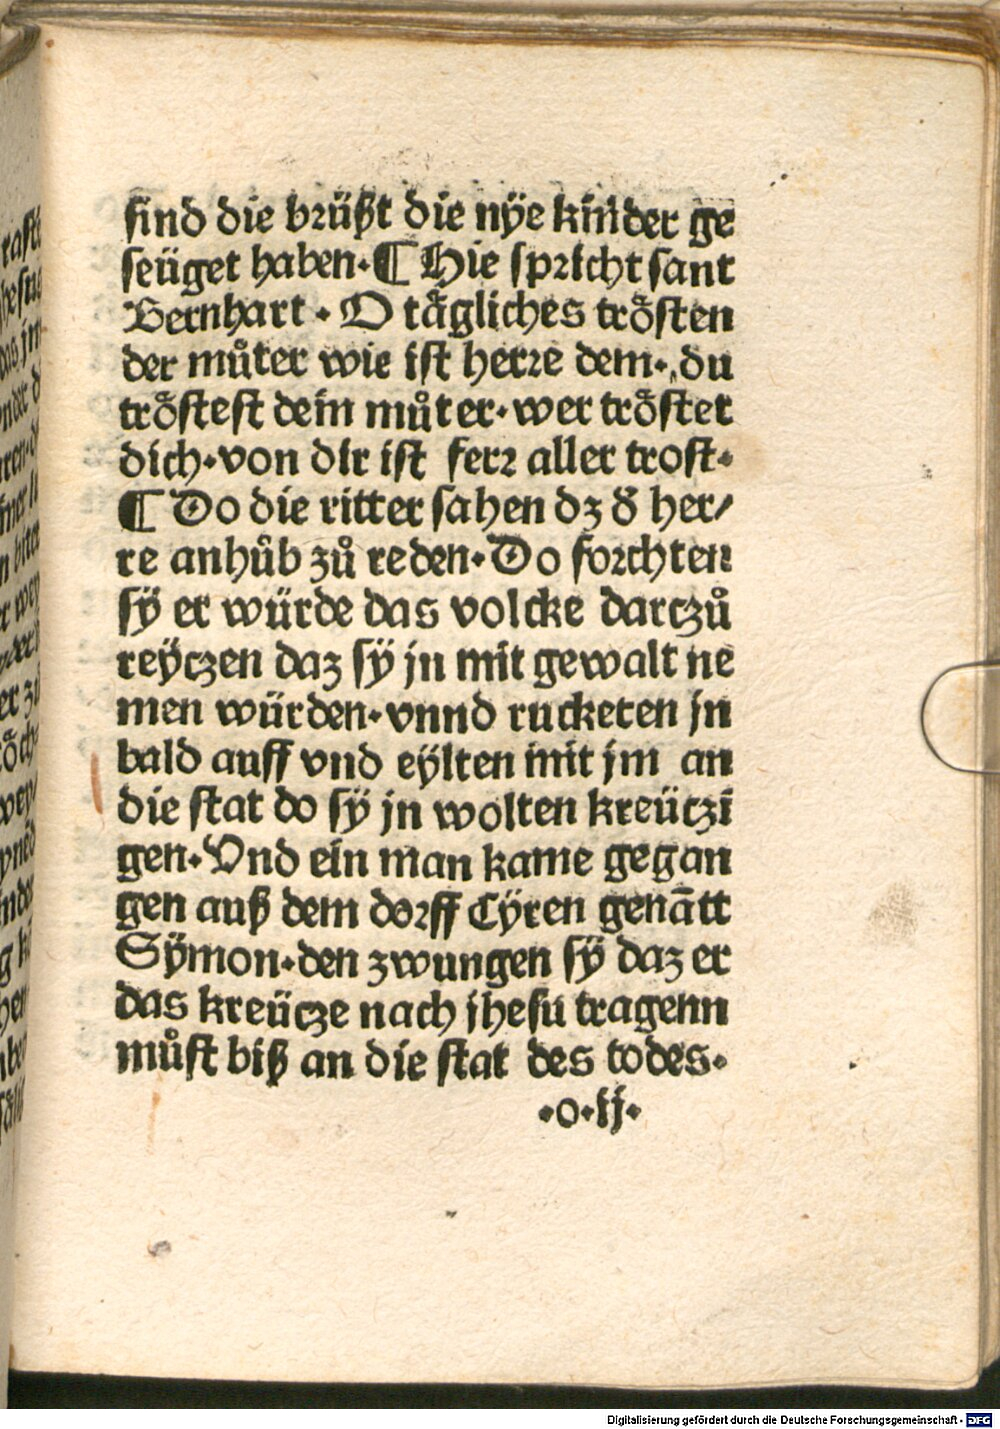 ſind die brüßt die nÿe kinder ge
ſeüget haben·¶ Hie ſpricht ſant
Bernhart · O tågliches trôſten
der můter wie iſt herre dem· du
trôſteſt dein můter·wer trôſtet
dich·von dir iſt ferr aller troſt·
¶ Do die ritter ſahen dʒ ď her/
re anhůb zů reden·Do forchten
ſÿ er würde das volcke darczů
reÿczen daz ſÿ jn mit gewalt ne
men würden·vnnd rucketen jn
bald auff vnd eÿlten mit jm an
die ſtat do ſÿ jn wolten kreüczi
gen·Vnd ein man kame gegan
gen auß dem dorff Cÿren genātt
Sÿmon·den zwungen ſÿ daz er
das kreücze nach jheſu tragenn
můſt biß an die ſtat des todes·
·o·ij·
Digitalisierung gefördert durch die Deutsche Forschungsgemeinschaft - DFG